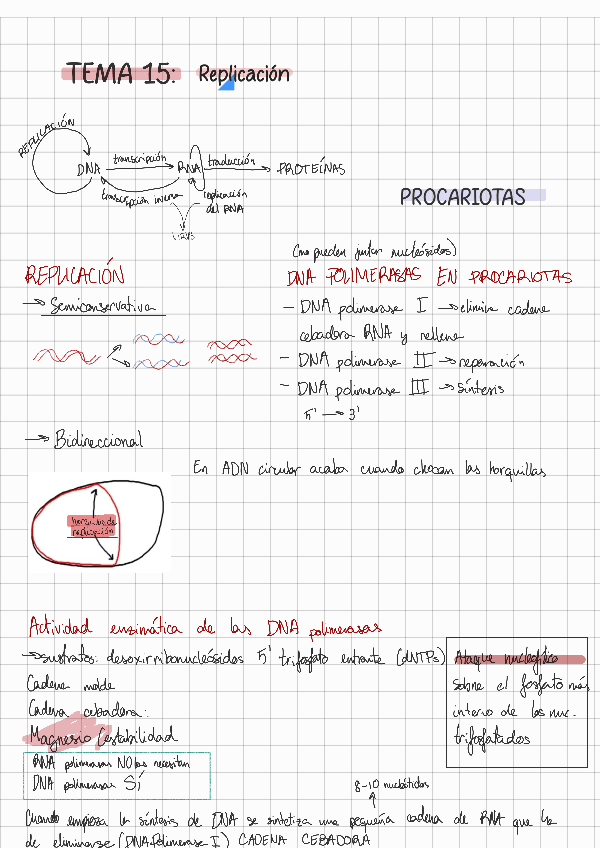 TEMA 15: Replicación
REPLICACIÓN
DNA transcripción RNA traducción PROTEÍNAS
transcripción inversa replicación
del RNA
virus
PROCARIOTAS
REPLICACIÓN
→ Semiconservativa
(no pueden juntar nucleósidos)
DNA POLIMERASAS EN PROCARIOTAS
- DNA polimerase I → elimina cadena
cebadora RNA y rellena
- DNA polimerase II → reparación
- DNA polimerase III → síntesis
5' → 3'
→ Bidireccional
En ADN circular acaba cuando chocan las horquillas
horquillas de
replicación
Actividad enzimática de las DNA polimerasas
→ sustratos: desoxirribonucleósidos 5' trifosfato entrante (dNTPs)
Cadena molde
Cadena cebadora:
Magnesio (estabilidad
RNA polimerasas NO las necesitan
DNA polimerasas SÍ
Ataque nucleofílico
sobre el fosfato más
interno de los nuc.
trifosfatados
8-10 nucleótidos
Cuando empieza la síntesis de DNA se sintetiza una pequeña cadena de RNA que ha
de eliminarse (DNA Polimerase I) CADENA CEBADORA